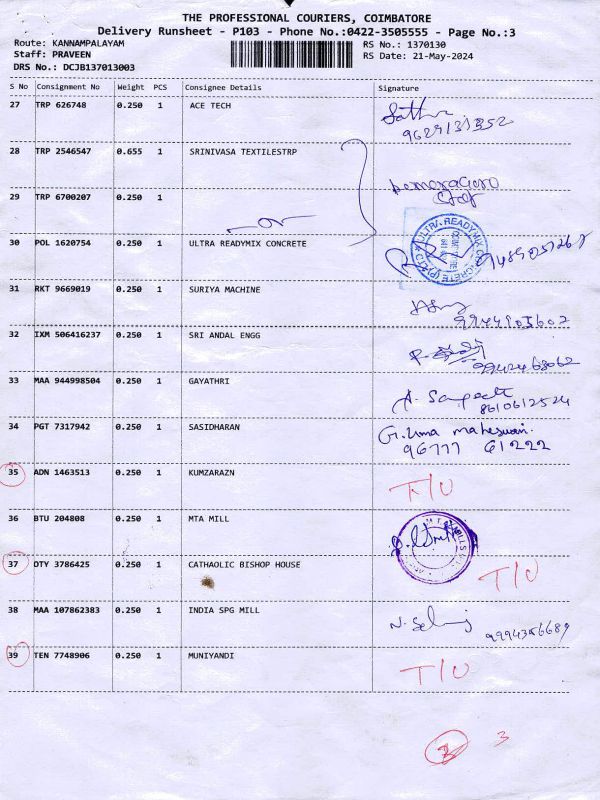 THE PROFESSIONAL COURIERS, COIMBATORE
Delivery Runsheet - P103 - Phone No.:0422-3505555 - Page No.:3
Route: KANNAMPALAYAM
RS No.: 1370130
Staff: PRAVEEN
RS Date: 21-May-2024
DRS No.: DCJB137013003
S No Consignment No Weight PCS Consignee Details Signature
27 TRP 626748 0.250 1 ACE TECH
28 TRP 2546547 0.655 1 SRINIVASA TEXTILESTRP
29 TRP 6700207 0.250 1
30 POL 1620754 0.250 1 ULTRA READYMIX CONCRETE
ULTRA READYMIX CONCRETE
31 RKT 9669019 0.250 1 SURIYA MACHINE
9944905602
32 IXM 506416237 0.250 1 SRI ANDAL ENGG
9942468062
33 MAA 944998504 0.250 1 GAYATHRI
8610612524
34 PGT 7317942 0.250 1 SASIDHARAN
G. Uma maheswari.
96777 61222
35 ADN 1463513 0.250 1 KUMZARAZN T/U
36 BTU 204808 0.250 1 MTA MILL
37 OTY 3786425 0.250 1 CATHAOLIC BISHOP HOUSE T/U
38 MAA 107862383 0.250 1 INDIA SPG MILL
9994356689
39 TEN 7748906 0.250 1 MUNIYANDI T/U
3